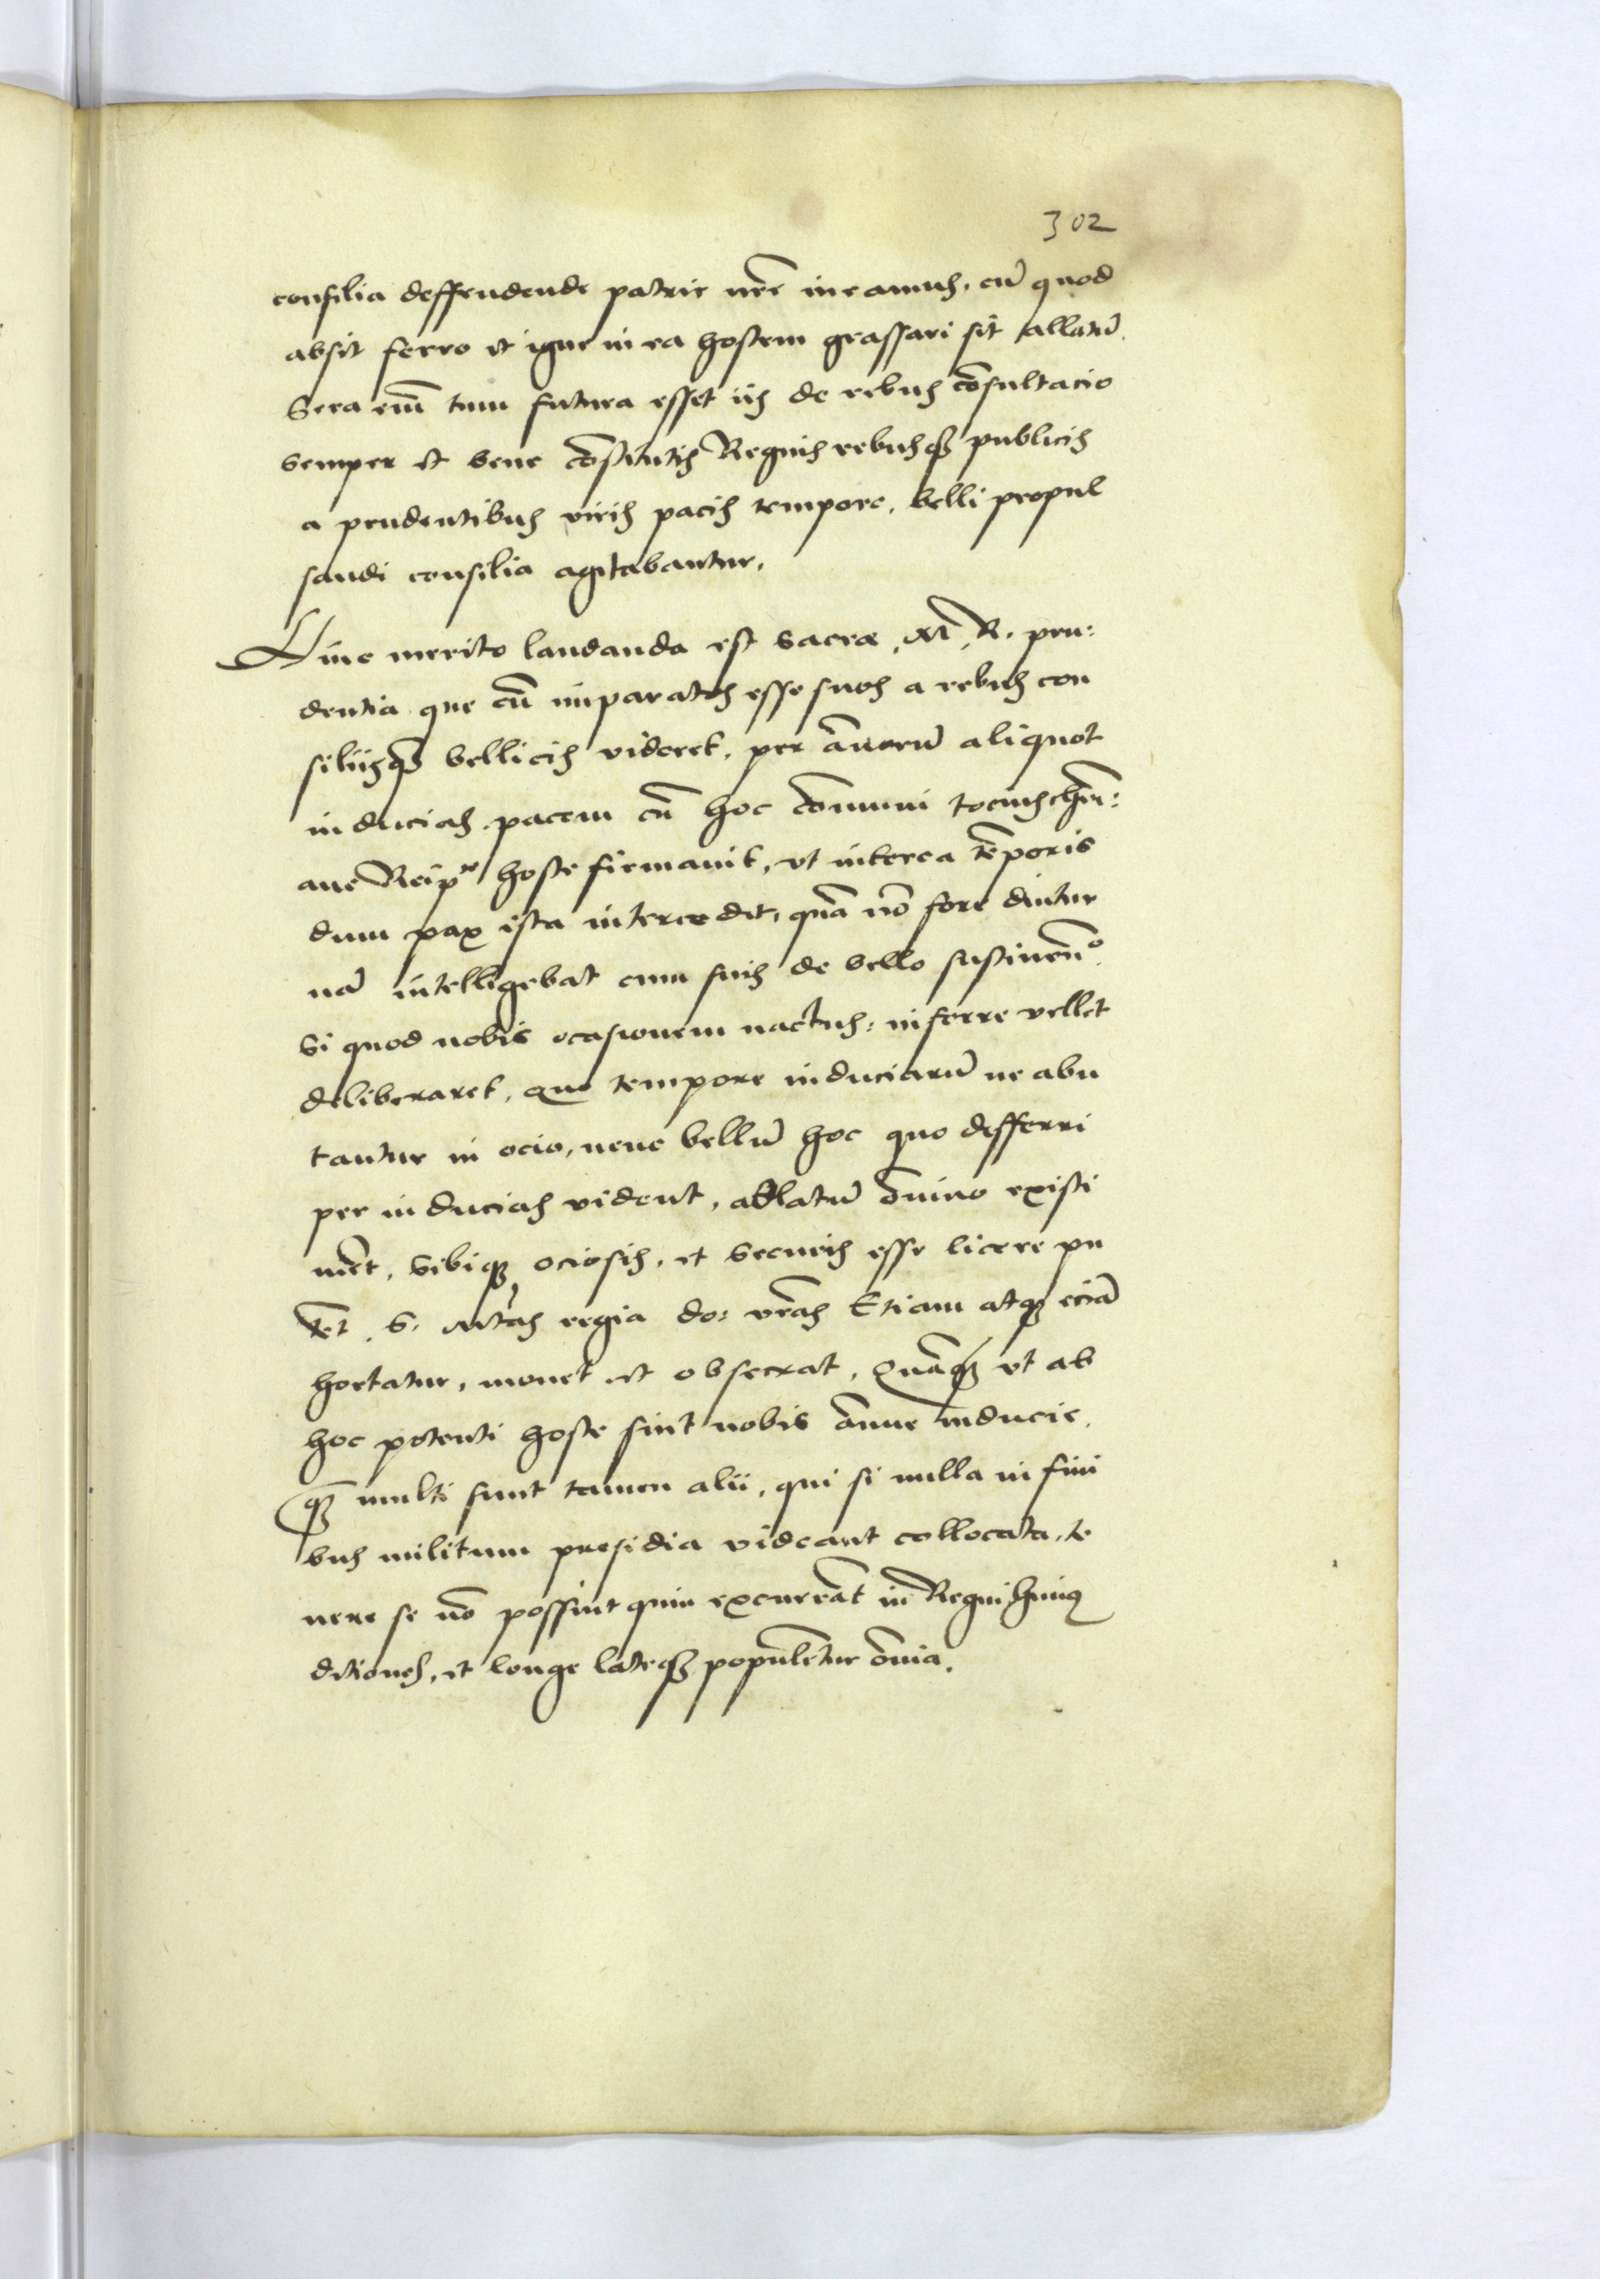 302
consilia deffendende patrie nr̃e ineamus, cũ quod
absit ferro et igne in ea hostem grassari sit allatũ.
Sera eni͂ tum futura esset iis de rebus cõsultacio
semper et bene cõstitutis Regnis rebusq₃ publicis
a prudentibus viris pacis tempore, belli propul
sandi consilia agitabantur.
Hinc merito laudanda est Sacræ, M, R. pru:
dentia que cũ imparatos esse suos a rebus con
siliisq₃ bellicis videret, per ãnorũ aliquot
inducias pacem cũ hoc cõmuni tocius chr̃i:
ane Reip͂ hoste firmauit, vt interea tẽporis
dum pax ista intercedit, quã nõ fore diutur
nã intelligebat cum suis de bello sustinen͂º
si quod nobis ocasionem nactus: inferre vellet
deliberaret, quo tempore induciarũ ne abu
tantur in ocio, neue bellũ hoc quo differri
per inducias vident, ablatũ õnino existi
mẽt, sibiq₃ ociosis, et securis esse licere pu
tẽt, S. Mtãs regia do: vrãs Etiam atq₃ eciã
hortatur, monet et obsecrat, Quãq₃ vt ab
hoc potenti hoste sint nobis ãnue inducie,
q₃ multi sunt tamen alii, qui si nulla in fini
bus militum presidia videant collocata, te
nere se nõ possint quin excurrãt in Regni huiꝰ
ditiones, et longe lateq₃ populẽtur õnia.